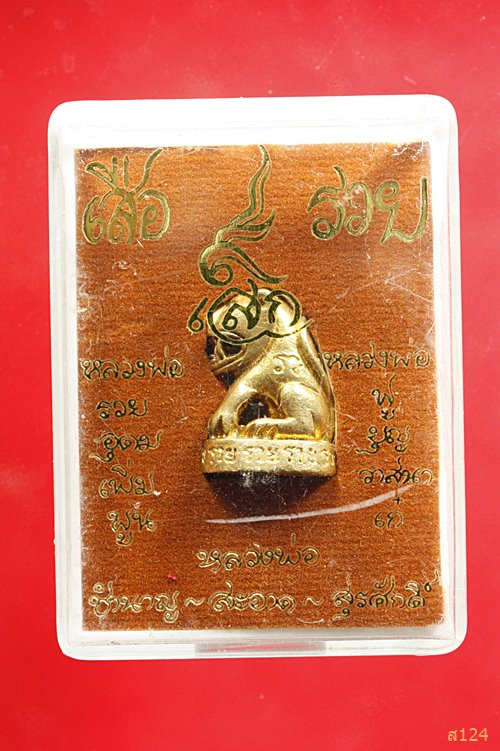 เสือ ๙ รวย
เสก
หลวงพ่อ
รวย
อุดม
เพิ่ม
พูน
หลวงพ่อ
ฟู
บุญ
วาสนา
รวย รวย รวย
หลวงพ่อ
ชำนาญ ~ สะอาด ~ สุรศักดิ์
ส124